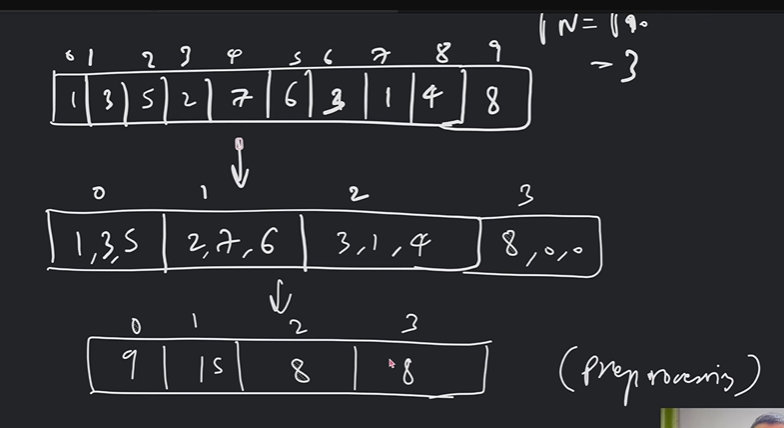 √N = √10
= 3
0 1 2 3 4 5 6 7 8 9
1 3 5 2 7 6 3 1 4 8
0 1 2 3
1,3,5 2,7,6 3,1,4 8,0,0
0 1 2 3
9 15 8 8
(preprocessing)